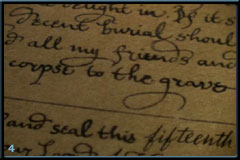 brought in. If its
Decent burial shoul
d all my friends and
corpst to the grave
and seal this fifteenth
4